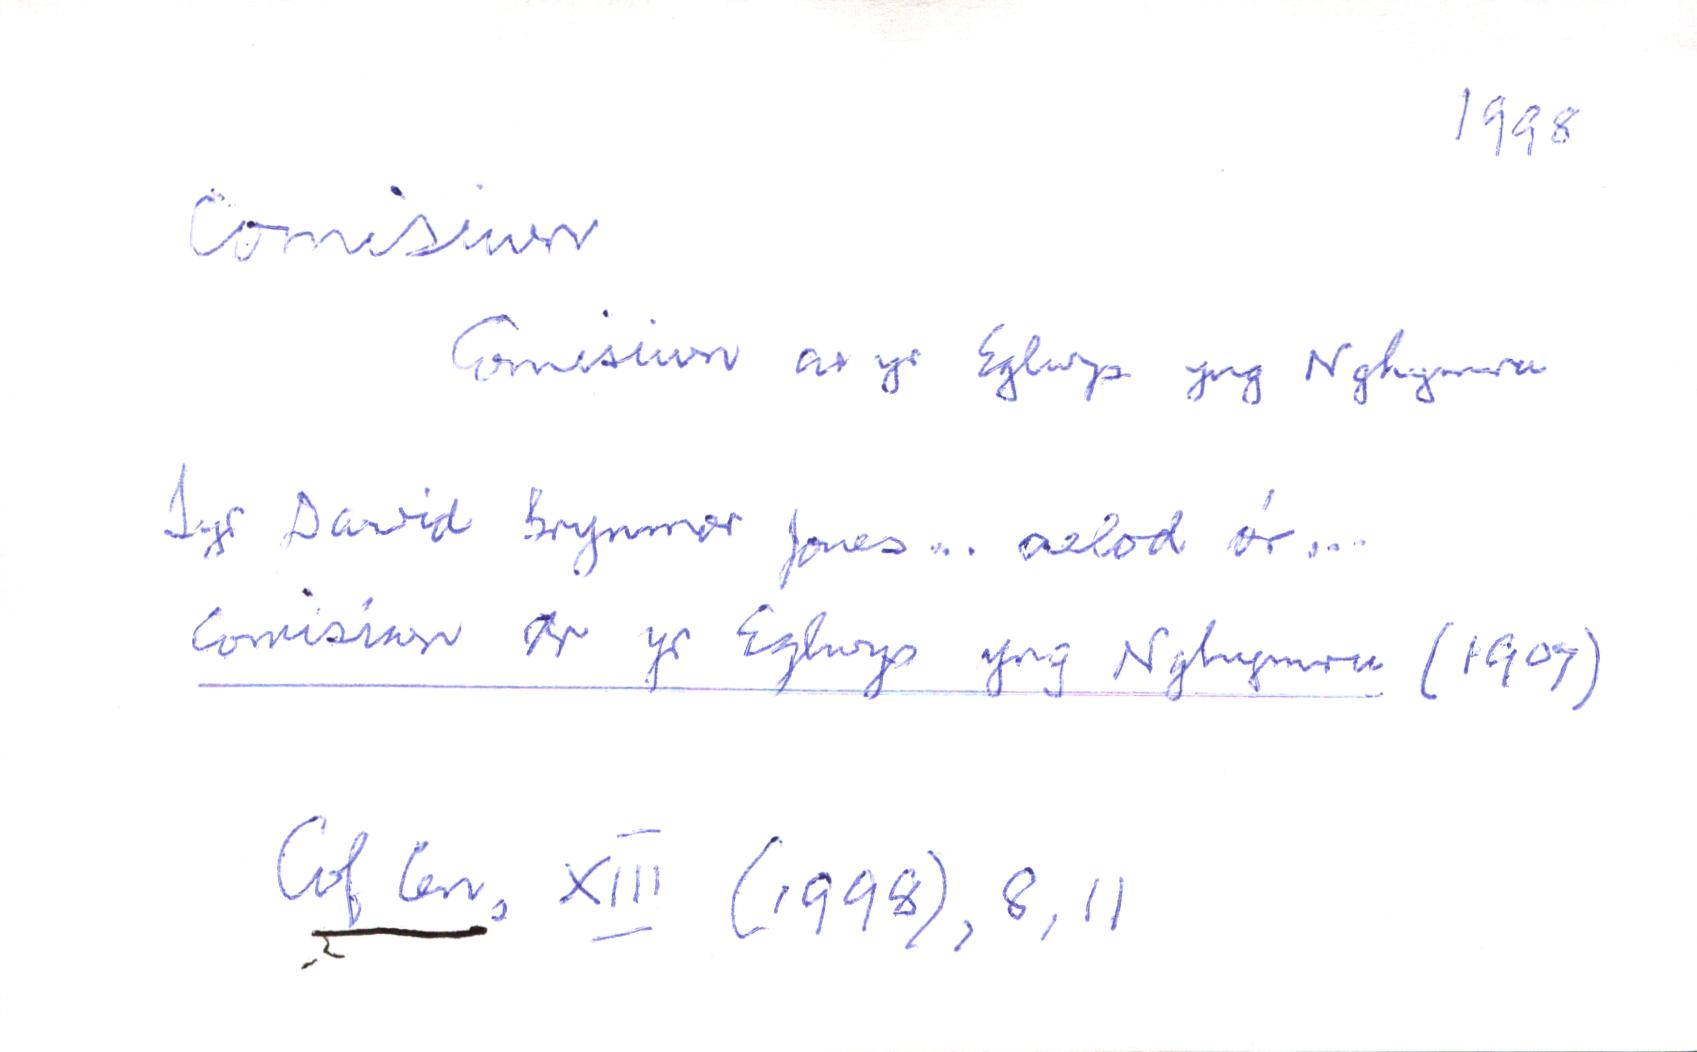 1998
Comisiwn
Comisiwn ar yr Eglwys yng Nghymru
Syr David Brynmor Jones ... aelod o'r ...
Comisiwn Ar yr Eglwys yng Nghymru (1907)
Cof Cen, XIII (1998), 8, 11